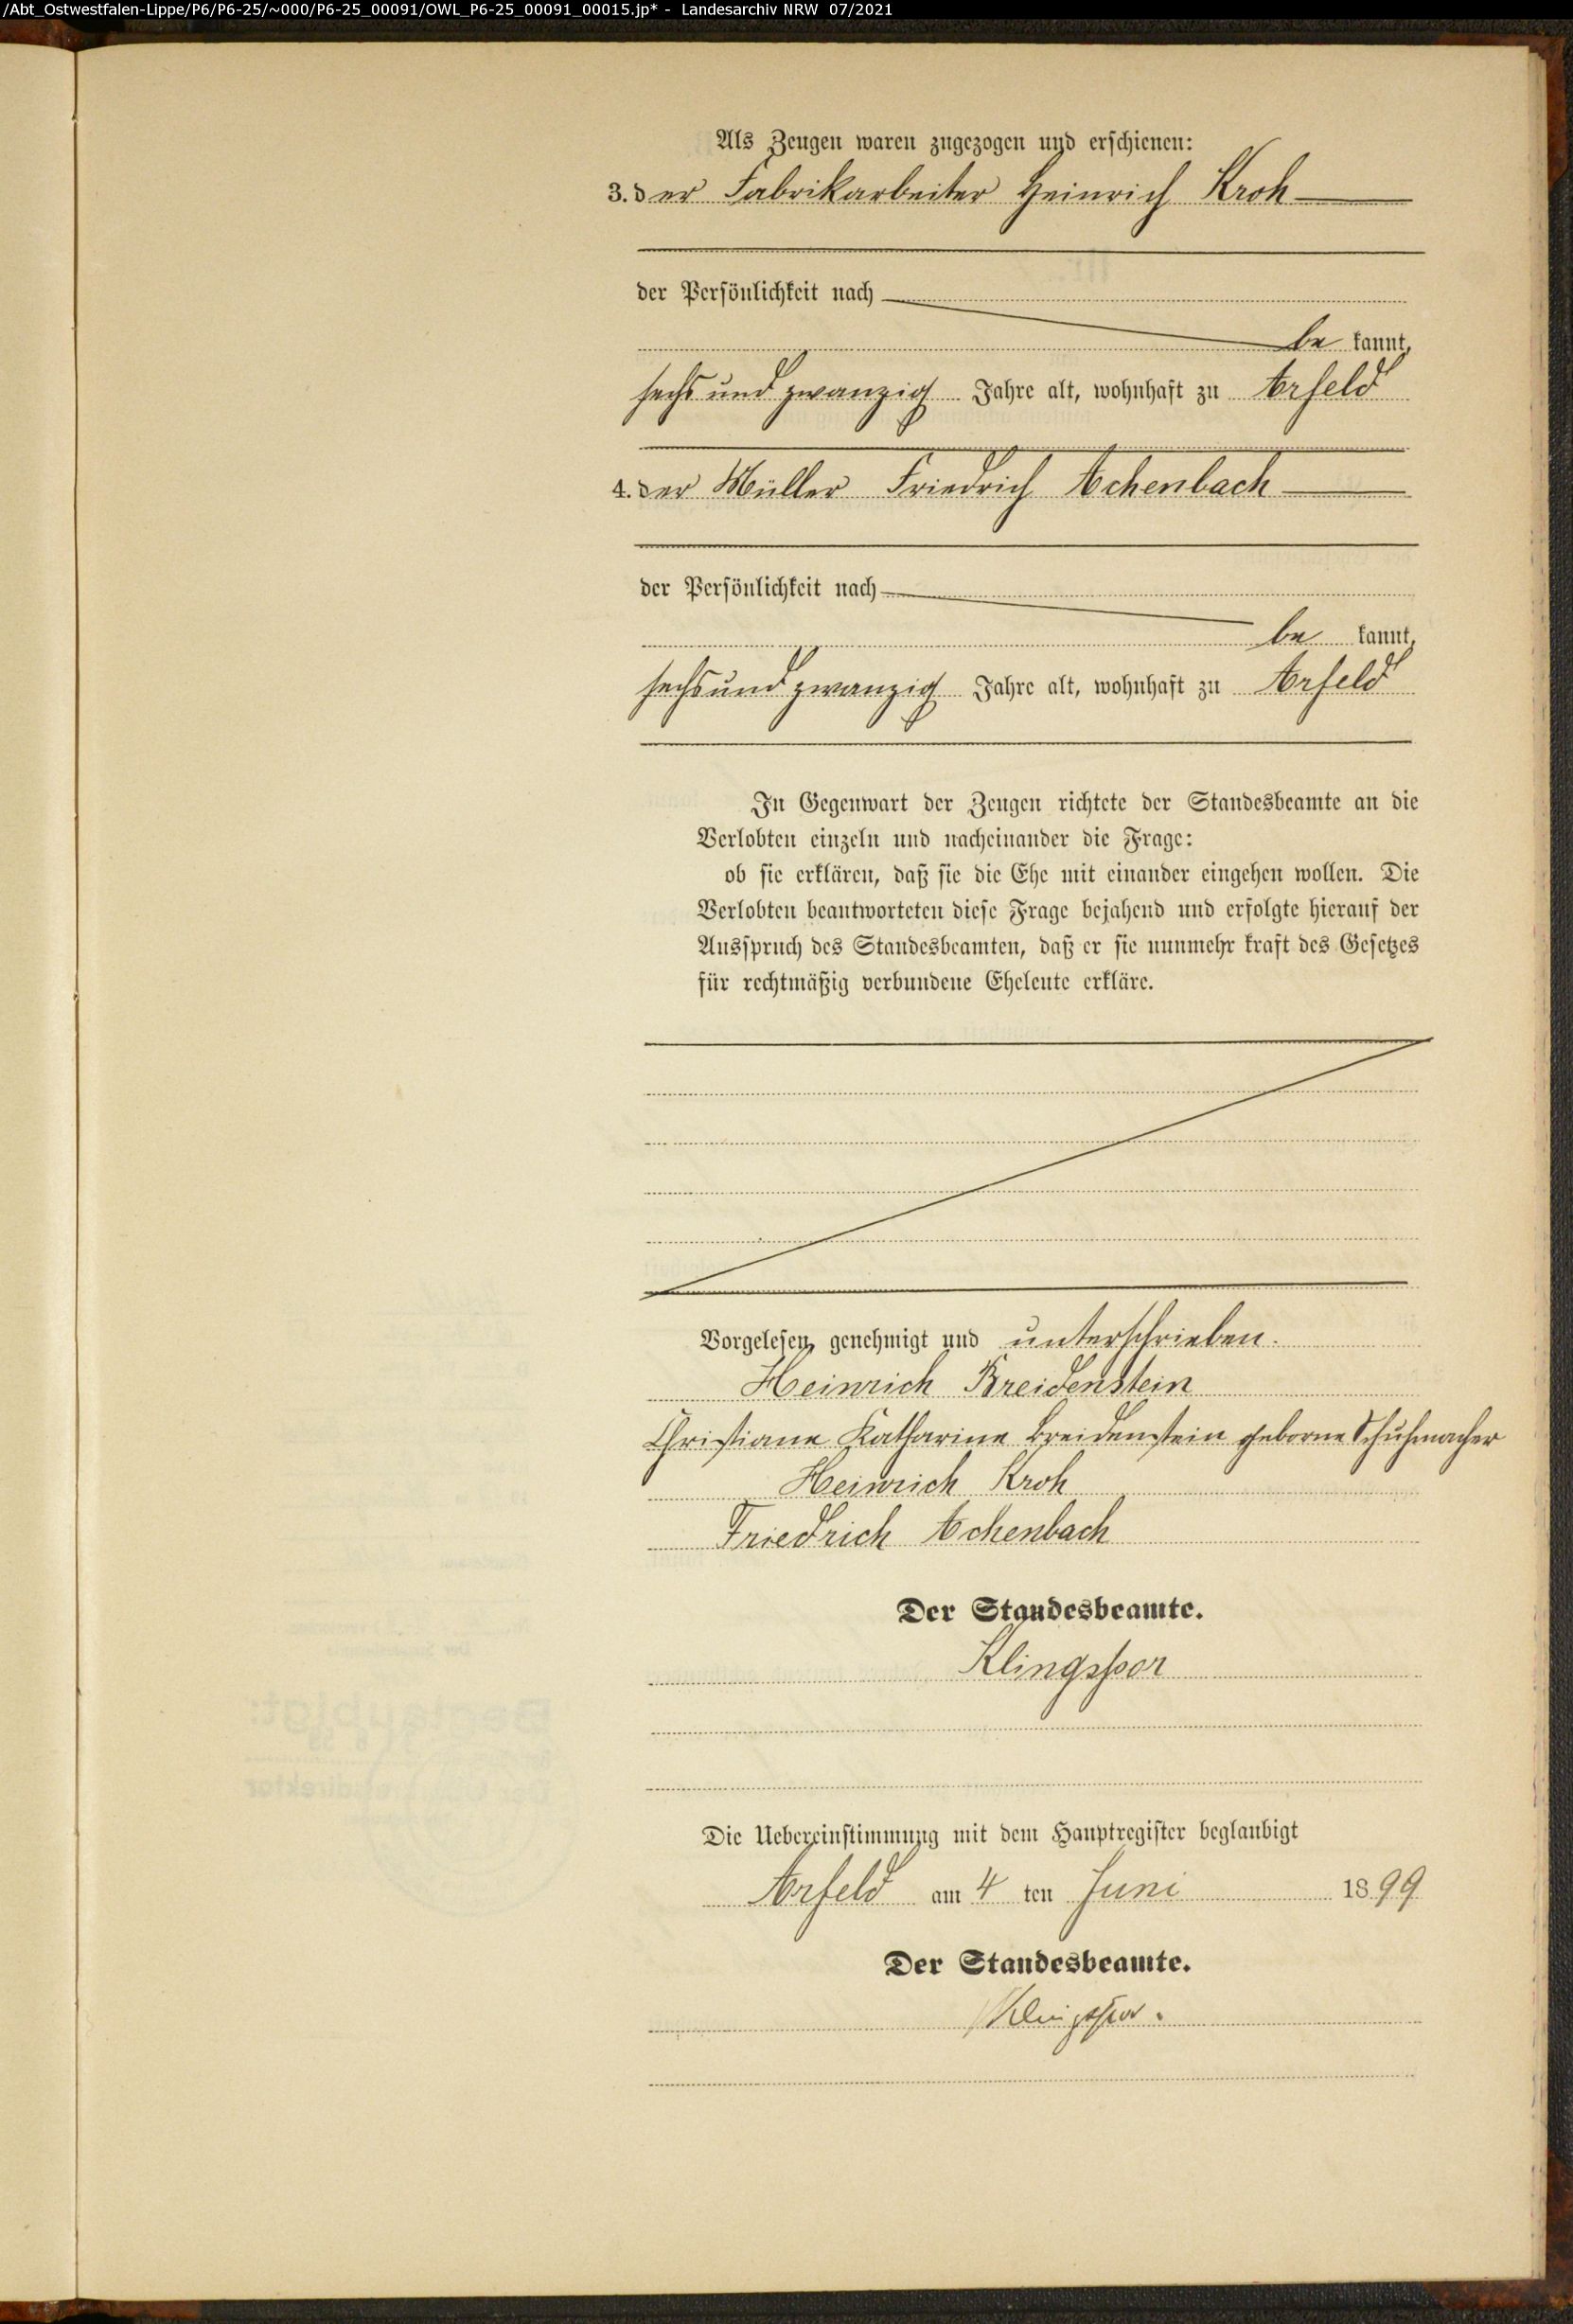 /Abt_Ostwestfalen-Lippe/P6/P6-25/~000/P6-25_00091/OWL_P6-25_00091_00015.jp* - Landesarchiv NRW 07/2021
Als Zeugen waren zugezogen und erschienen:
3. der Fabrikarbeiter Heinrich Kroh
der Persönlichkeit nach
be kannt,
sechs und zwanzig Jahre alt, wohnhaft zu Arfeld
4. der Müller Friedrich Achenbach
der Persönlichkeit nach
be kannt,
sechs und zwanzig Jahre alt, wohnhaft zu Arfeld
In Gegenwart der Zeugen richtete der Standesbeamte an die
Verlobten einzeln und nacheinander die Frage:
ob sie erklären, daß sie die Ehe mit einander eingehen wollen. Die
Verlobten beantworteten diese Frage bejahend und erfolgte hierauf der
Ausspruch des Standesbeamten, daß er sie nunmehr kraft des Gesetzes
für rechtmäßig verbundene Eheleute erkläre.
Vorgelesen, genehmigt und unterschrieben.
Heinrich Breidenstein
Christiane Katharine Breidenstein geborne Schuhmacher
Heinrich Kroh
Friedrich Achenbach
Der Standesbeamte.
Klingspor
Die Uebereinstimmung mit dem Hauptregister beglaubigt
Arfeld am 4 ten Juni 1899
Der Standesbeamte.
Klingspor.